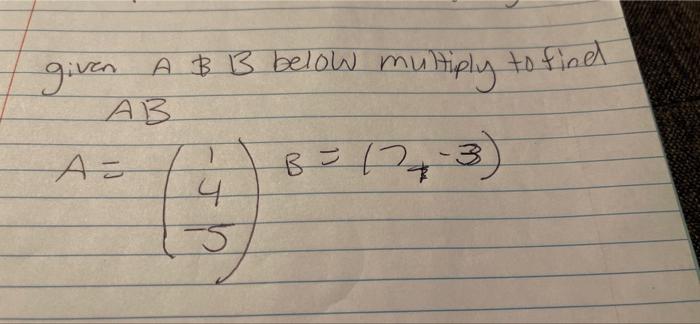 given A & B below multiply to find
AB
A = (1 B = (7, -3)
4
-5)